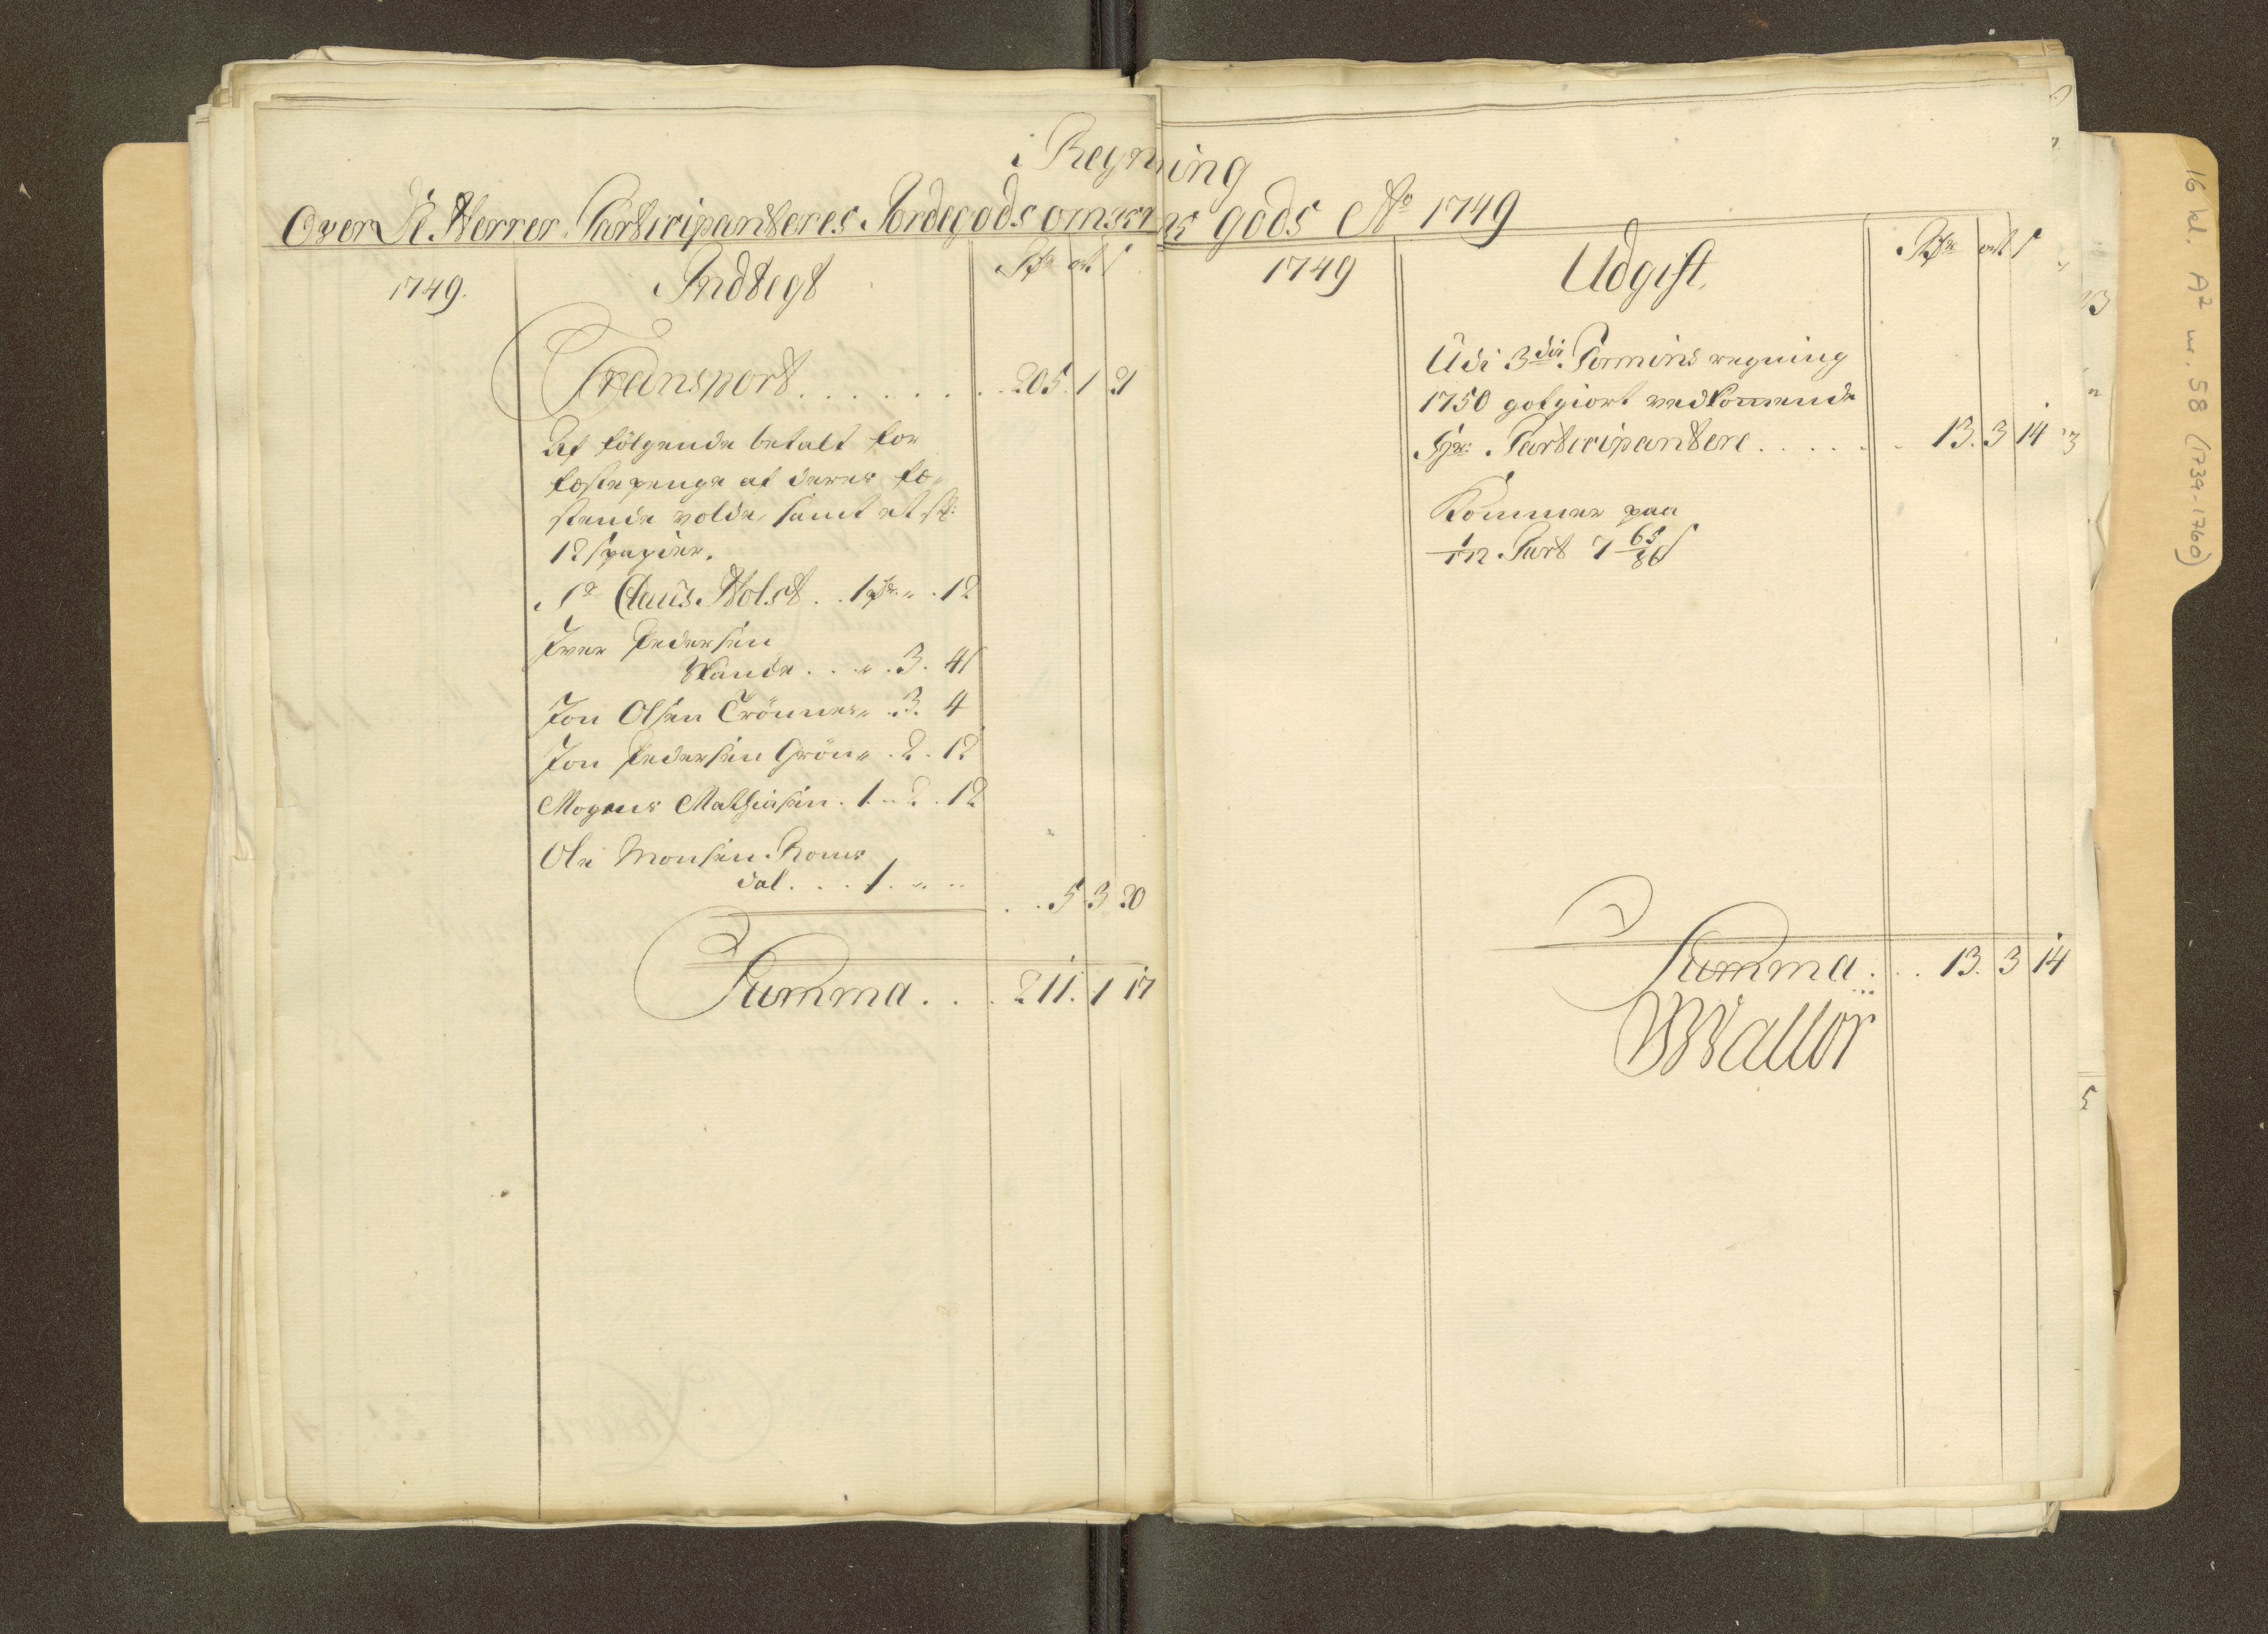 i Regning
Over De Herrer Participanteres Jordegods gods Ao 1749
1749.
Indtegt
Rdr ort s
Transport . . . . . . . 205. 1 21
Af følgende betalt for
fæstepenge af deres fæ-
stende volde, samt et st:
12 s papier.
Sr Claus Holst . . 1 rdr „ . 12
Iver Pedersen
Wande . . „ . 3. 4 s
Jon Olsen Trönnes „ . 3. 4
Jon Pedersen Grön „ . 2 . 12
Mogens Mathiasen . 1 . 2 . 12
Ole Monsen Roms
dal . . . 1 . „ ..
. . 5 3 20
Summa . . . 211. 1 17
1749
Udgift
Rdr ort s
Udi 3die Termins regning
1750 gotgiort vedkommende
Hr: Participantere . . . . . . 13. 3 14
Kommer paa
1/172 Part 7 65/86 s
Summa . . . 13. 3 14
Wallør
16 kl. A2 nr. 58 (1739-1760)